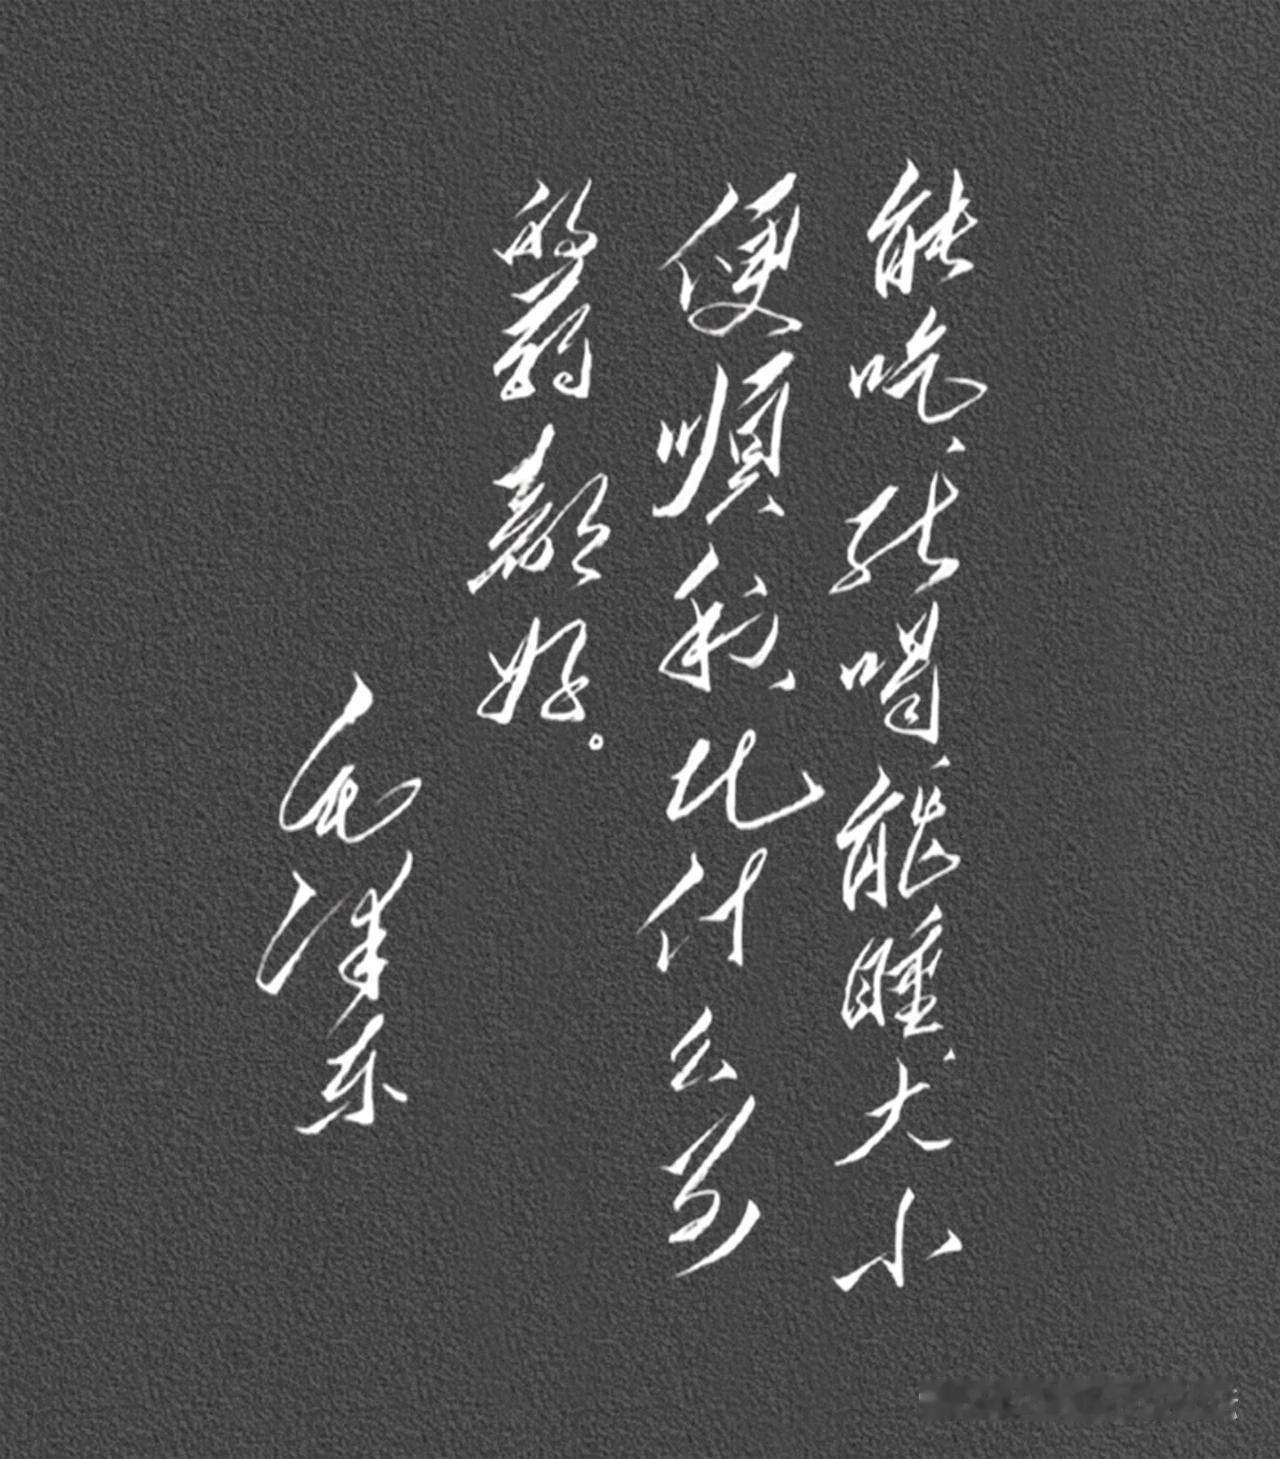 能吃、能喝、能睡、大小
便順利、比什么
的药都好。
毛泽东